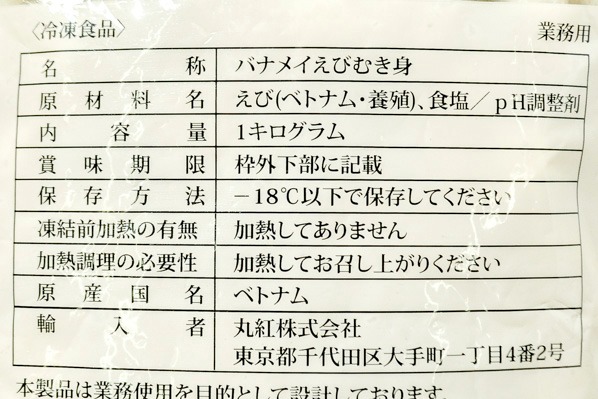 〈冷凍食品〉 業務用
名称 バナメイえびむき身
原材料名 えび(ベトナム・養殖)、食塩／pH調整剤
内容量 1キログラム
賞味期限 枠外下部に記載
保存方法 －18℃以下で保存してください
凍結前加熱の有無 加熱してありません
加熱調理の必要性 加熱してお召し上がりください
原産国名 ベトナム
輸入者 丸紅株式会社
東京都千代田区大手町一丁目4番2号
本製品は業務使用を目的として設計しております。